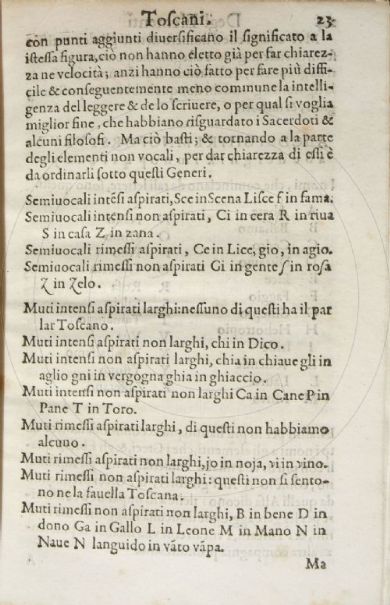 Toscani. 23
con punti aggiunti diuersificano il significato a la
istessa figura, ciò non hanno eletto già per far chiarez-
za ne velocità; anzi hanno ciò fatto per fare più diffi-
cile & conseguentemente meno commune la intelli-
genza del leggere & de lo scriuere, o per qual si voglia
miglior fine, che habbiano risguardato i Sacerdoti &
alcuni filosofi. Ma ciò basti; & tornando a la parte
degli elementi non vocali, per dar chiarezza di essi è
da ordinarli sotto questi Generi.
Semiuocali intēsi aspirati, Sce in Scena Lisce f in fama.
Semiuocali intensi non aspirati, Ci in cera R in riua
S in casa Z in zana.
Semiuocali rimessi aspirati, Ce in Lice, gio, in agio.
Semiuocali rimessi non aspirati Gi in gente ſ in rosa
Z in Zelo.
Muti intensi aspirati larghi: nessuno di questi ha il par
lar Toscano.
Muti intensi aspirati non larghi, chi in Dico.
Muti intensi non aspirati larghi, chia in chiaue gli in
aglio gni in vergogna ghia in ghiaccio.
Muti intensi non aspirati non larghi Ca in Cane P in
Pane T in Toro.
Muti rimessi aspirati larghi, di questi non habbiamo
alcuno.
Muti rimessi aspirati non larghi, jo in noja, vi in vino.
Muti rimessi non aspirati larghi: questi non si sento-
no ne la fauella Toscana.
Muti rimessi non aspirati non larghi, B in bene D in
dono Ga in Gallo L in Leone M in Mano N in
Naue N languido in vāto vāpa.
Ma